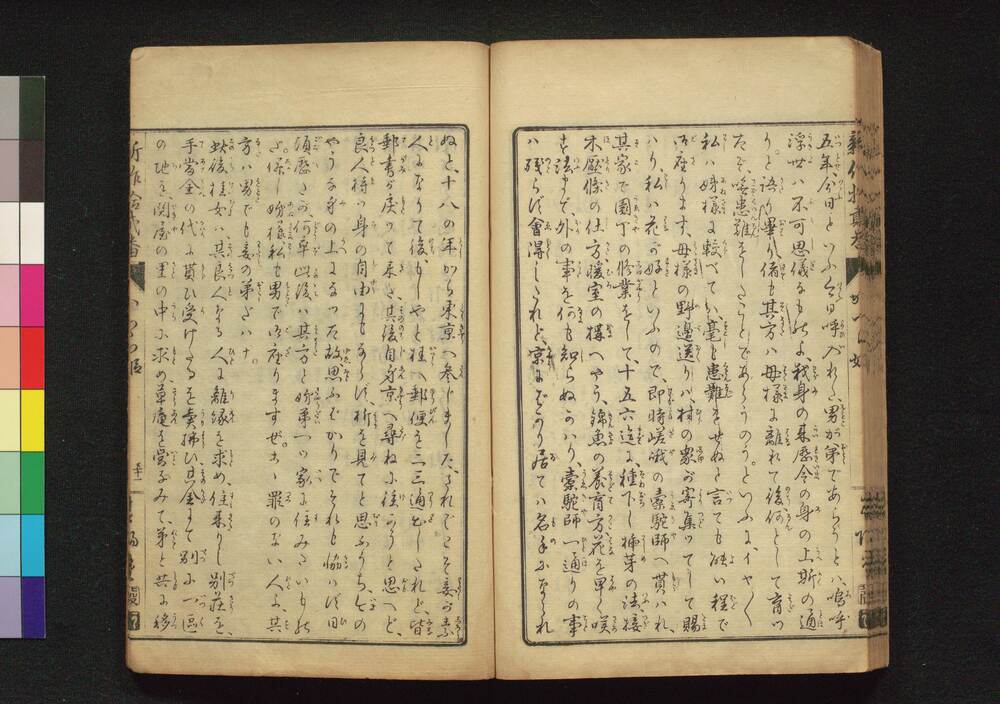 五年、今日といふ今日呼入れた男が弟であらうとハ、嗚呼
浮世ハ不可思儀なものよ、我身の来歴今の身の上斯の通
りと語り畢り、偖も其方ハ母様に離れて後何として育ツ
たぞ、嘸患難をしたことであらうのうといふに、イヤ〳〵
私ハ姉様に較べてハ、毫も患難をせぬと言ても能い程で
御座ります、母様の野邊送りハ、村の衆が寄集ツてして賜
ハり、私ハ花が好といふので、即時嵯峨の橐駝師へ貰ハれ
其家で園丁の修業をして、十五六迄に、種下し挿芽の法、接
木壓條の仕方暖室の構へやう、錦魚の養育方、花を早く咲
す法まで、外の事を何も知らぬかハり、橐駝師一通りの事
ハ残らず會得しましたれど、京にばかり居てハ名手になられ
ぬと、十八の年から東京へ参じました、されどこそ妾が素
人になりて後もしやと程へ郵便を二三通出したれど、皆
郵書が戻って来き、其後自身京へ尋ねに往かうと思へど、
良人持つ身の自由にもならず、折を見てと思ふうち、七の
やうな身の上になつた故思ふばかりでそれも協ハず、旧
須磨さの何卒此後ハ其方と姉弟一ツ家に住みたいもの
だ、保し姉様私も男で御座りますぜ、ホヽ罪のない人よ、其
方ハ男でも妾の弟だハナ
然後桂女ハ其良人なる人に離縁を求め、住来りし別荘を、
手當金の代に貰ひ受けたるを賣拂ひ、其金にて別に一區
の地を、関屋の里の中に求め、草庵を営なみて、弟と共に移